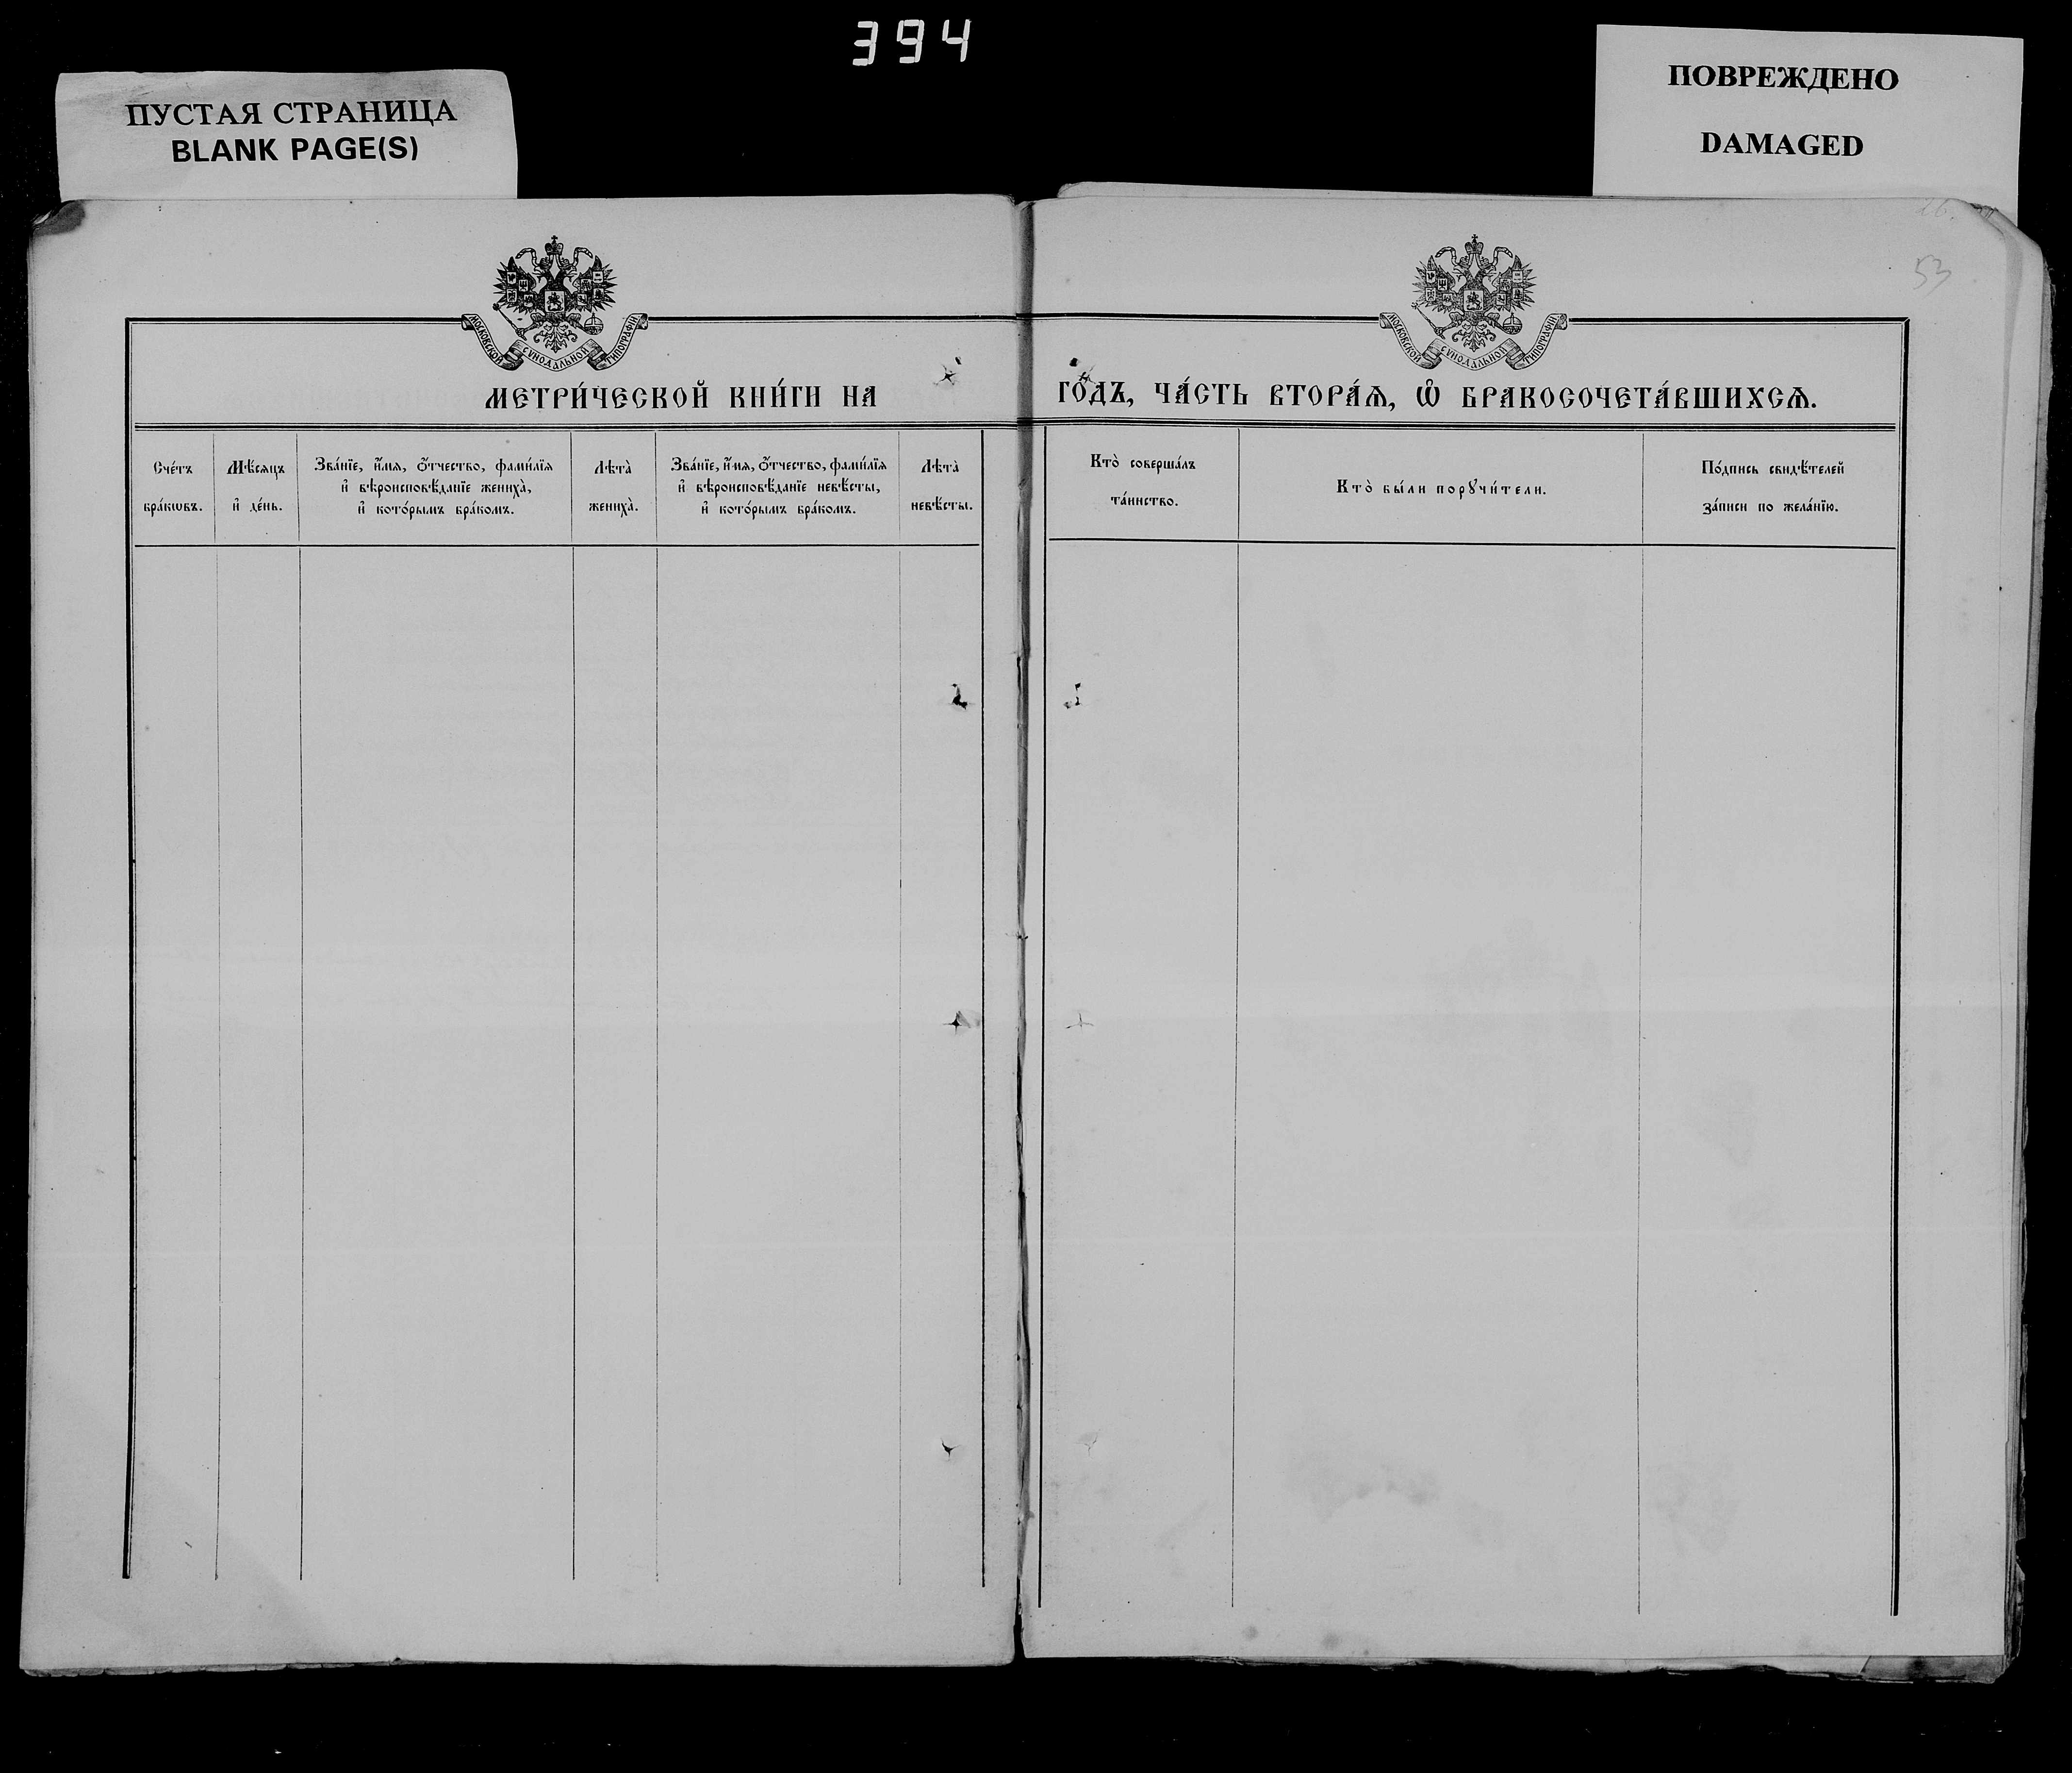 394
ПУСТАЯ СТРАНИЦА
BLANK PAGE(S)
ПОВРЕЖДЕНО
DAMAGED
53
МОСКОВСКОЙ СѴНОДАЛЬНОЙ ТИПОГРАФІИ
МОСКОВСКОЙ СѴНОДАЛЬНОЙ ТИПОГРАФІИ
МЕТРИ́ЧЕСКОЙ КНИ́ГИ НА
ГО́ДЪ, ЧА́СТЬ ВТОРА́Ѧ, Ѽ БРАКОСОЧЕТА́ВШИХСѦ.
Сче́тъ
бра́кѡвъ.
Мѣ́сѧцъ
и҆ де́нь.
Зва́нїе, и҆́мѧ, ѻ҆́тчество, фами́лїѧ
и҆ вѣроисповѣ́данїе жениха̀,
и҆ кото́рымъ бра́комъ.
Лѣта̀
жениха̀.
Зва́нїе, и҆́мѧ, ѻ҆́тчество, фами́лїѧ
и҆ вѣроисповѣ́данїе невѣ́сты,
и҆ кото́рымъ бра́комъ.
Лѣта̀
невѣ́сты.
Кто̀ соверша́лъ
та́инство.
Кто̀ бы́ли порꙋчи́тели.
По́дпись свидѣ́телей
за́писи по жела́нїю.